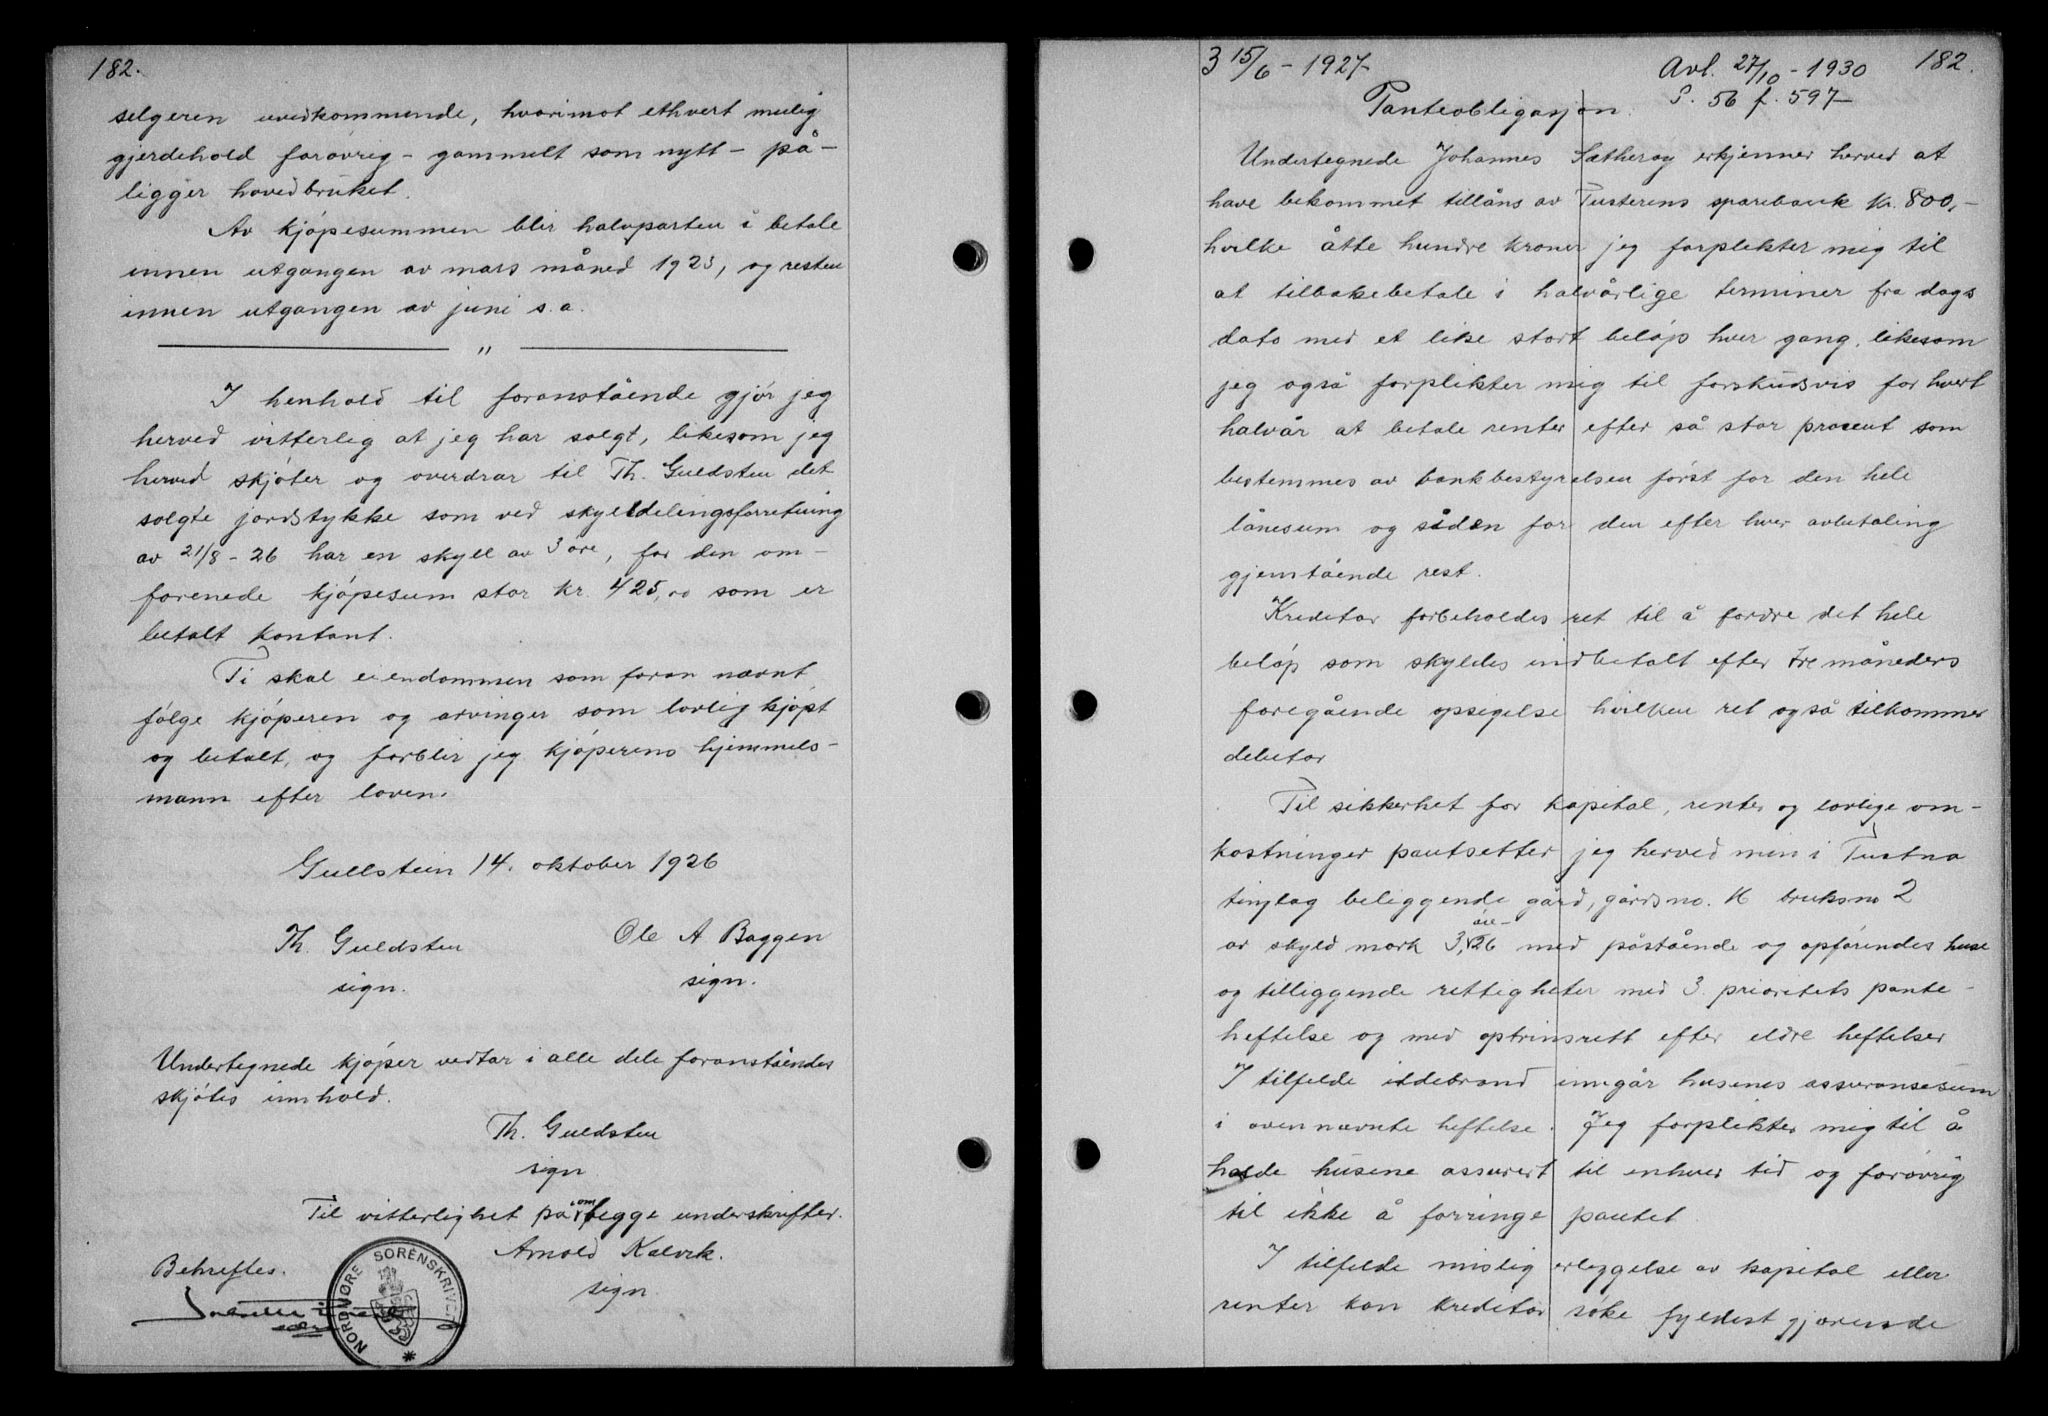 182.
selgeren uvedkommende, hvorimot ethvert mulig
gjerdehold forøvrig - gammelt som nytt - på-
ligger hovedbruket.
Av kjøpesummen blir halvparten å betale
innen utgangen av mars måned 1923, og resten
innen utgangen av juni s.a.
"
I henhold til foranstående gjør jeg
herved vitterlig at jeg har solgt, likesom jeg
herved skjøter og overdrar til Th. Guldsten det
solgte jordstykke som ved skylddelingsforretning
av 21/8 - 26 har en skyll av 3 øre, for den om-
forenede kjøpesum stor kr. 425,00 som er
betalt kontant.
Ti skal eiendommen som foran nævnt
følge kjøperen og arvinger som lovlig kjøpt
og betalt, og forblir jeg kjøperens hjemmels-
mann efter loven.
Gullstein 14. oktober 1926
Th. Guldsten Ole A Baggen
sign. sign.
Undertegnede kjøper vedtar i alle dele foranståendes
skjøtes innhold.
Th. Guldsten
sign
Til vitterlighet på om begge underskrifter.
Arnold Kalvik.
sign.
Behreftes.
NORDMØRE SORENSKRIVERI
3 15/6 - 1927 -
Avl. 27/10 - 1930
P. 56 f. 597 -
182.
Panteobligasjon.
Undertegnede Johannes Sætherøy erkjenner herved at
have bekommet tillåns av Tusterens sparebank kr. 800,-
hvilke åtte hundre kroner jeg forplikter mig til
at tilbakebetale i halvårlige terminer fra dags
dato med et like stort beløp hver gang, likesom
jeg også forplikter mig til forskudsvis for hvert
halvår at betale renter efter så stor procent som
bestemmes av bankbestyrelsen først for den hele
lånesum og siden for den efter hver avbetaling
gjenstående rest.
Kreditor forbeholdes ret til å fordre det hele
beløp som skyldes indbetalt efter tre måneders
foregående opsigelse hvilken ret også tilkommer
debitor
Til sikkerhet for kapital, renter og lovlige om-
kostninger pantsetter jeg herved min i Tustna
tinglag beliggende gård, gårdsno. 16 bruksno 2
av skyld mark 3,26 med påstående og opførendes huse
og tilliggende rettigheter med 3. prioritets pante-
heftelse og med optrinsrett efter eldre heftelser
I tilfelde ildebrand inngår husenes assuransesum
i ovennævnte heftelse. Jeg forplikter mig til å
holde husene assurert til enhver tid og forøvrig
til ikke å forringe pantet.
I tilfelde mislig erleggelse av kapital eller
renter kan kreditor søke fyldestgjørende